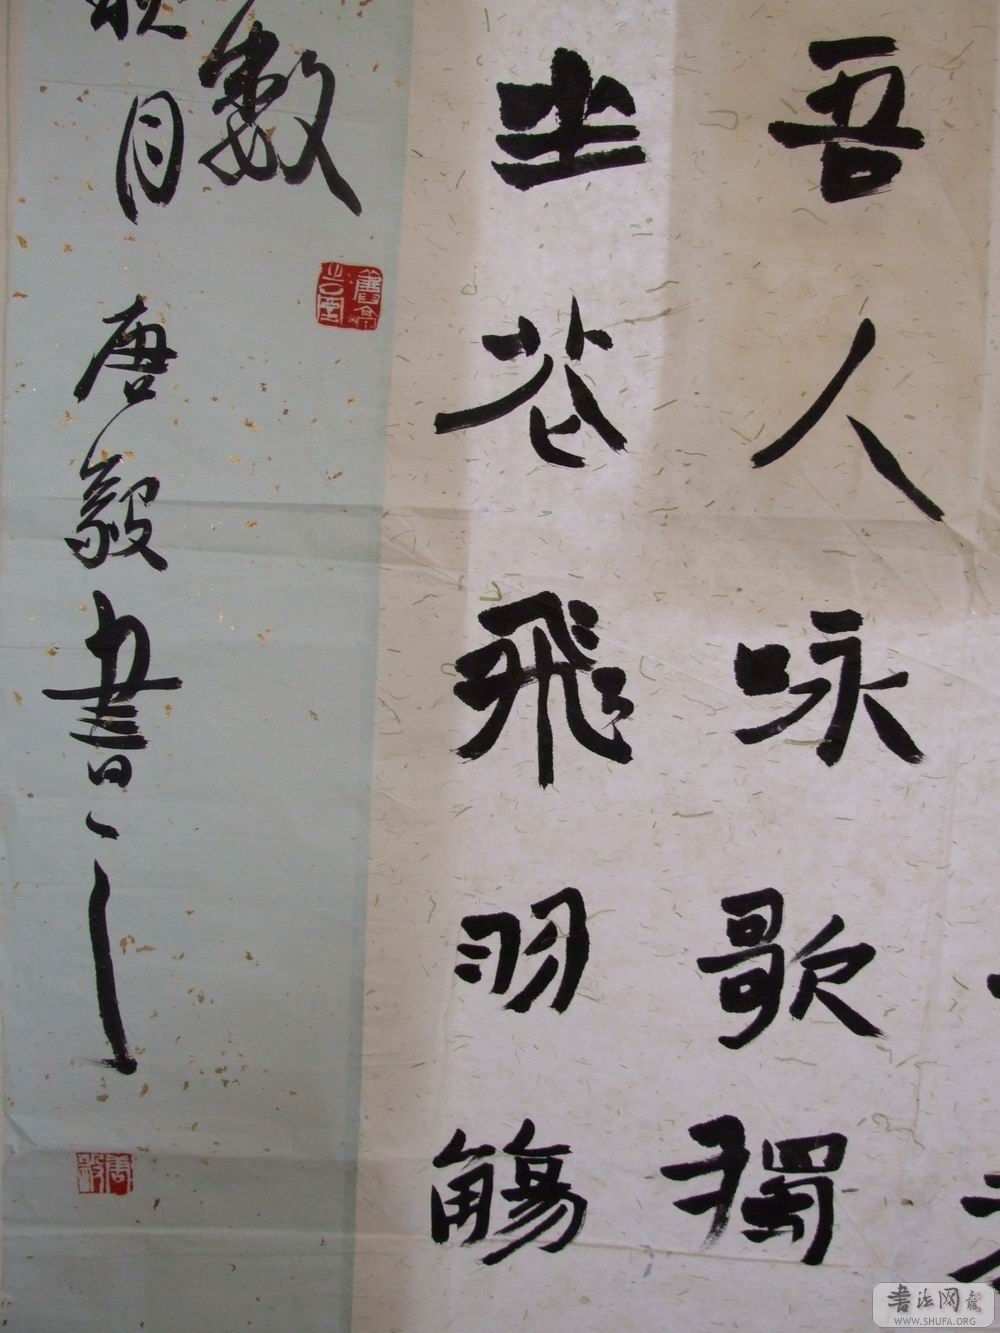 吾人咏歌獨
坐花飛羽觴
數
月唐毅書
唐毅
書法网
WWW.SHUFA.ORG